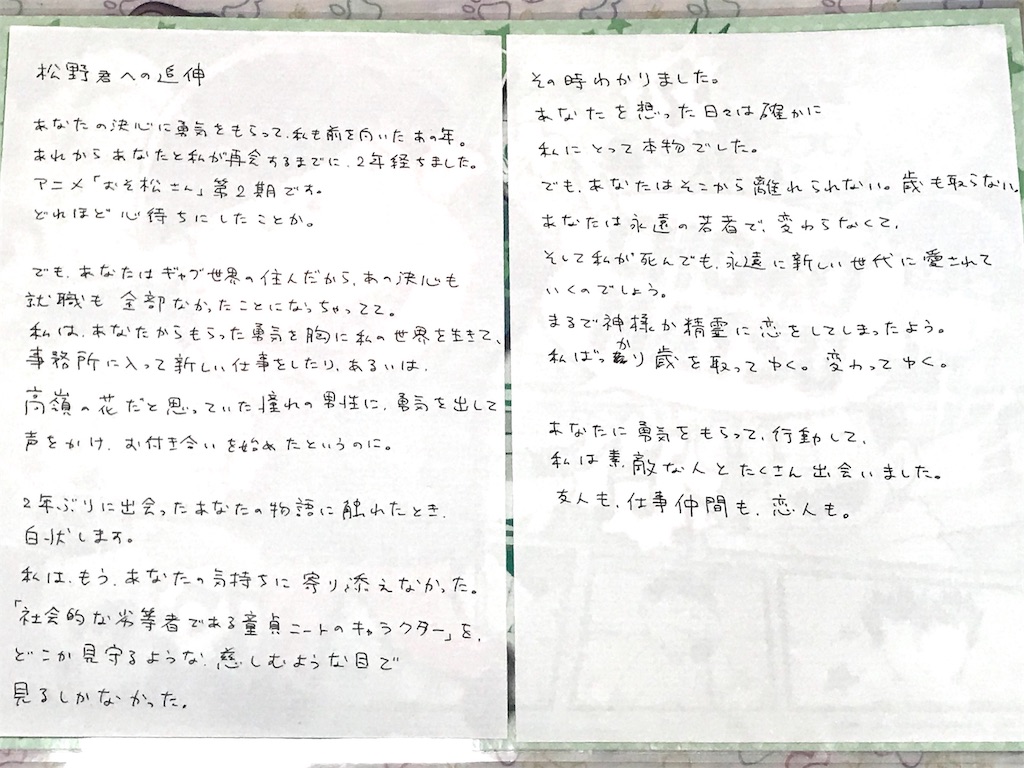 松野君への追伸
あなたの決心に勇気をもらって、私も前を向いたあの年。
あれからあなたと私が再会するまでに、2年経ちました。
アニメ「おそ松さん」第2期です。
どれほど心待ちにしたことか。
でも、あなたはギャグ世界の住人だから、あの決心も
就職も全部なかったことになっちゃってて。
私は、あなたからもらった勇気を胸に私の世界を生きて、
事務所に入って新しい仕事をしたり、あるいは、
高嶺の花だと思っていた憧れの男性に、勇気を出して
声をかけ、お付き合いを始めたというのに。
2年ぶりに出会ったあなたの物語に触れたとき、
白状します。
私は、もう、あなたの気持ちに寄り添えなかった。
「社会的な劣等者である童貞ニートのキャラクター」を、
どこか見守るような、慈しむような目で
見るしかなかった。
その時わかりました。
あなたを想った日々は確かに
私にとって本物でした。
でも、あなたはそこから離れられない。歳も取らない。
あなたは永遠の若者で、変わらなくて、
そして私が死んでも、永遠に新しい世代に愛されて
いくのでしょう。
まるで神様か精霊に恋をしてしまったよう。
私ばっかり歳を取ってゆく。変わってゆく。
あなたに勇気をもらって、行動して、
私は素敵な人とたくさん出会いました。
友人も、仕事仲間も、恋人も。